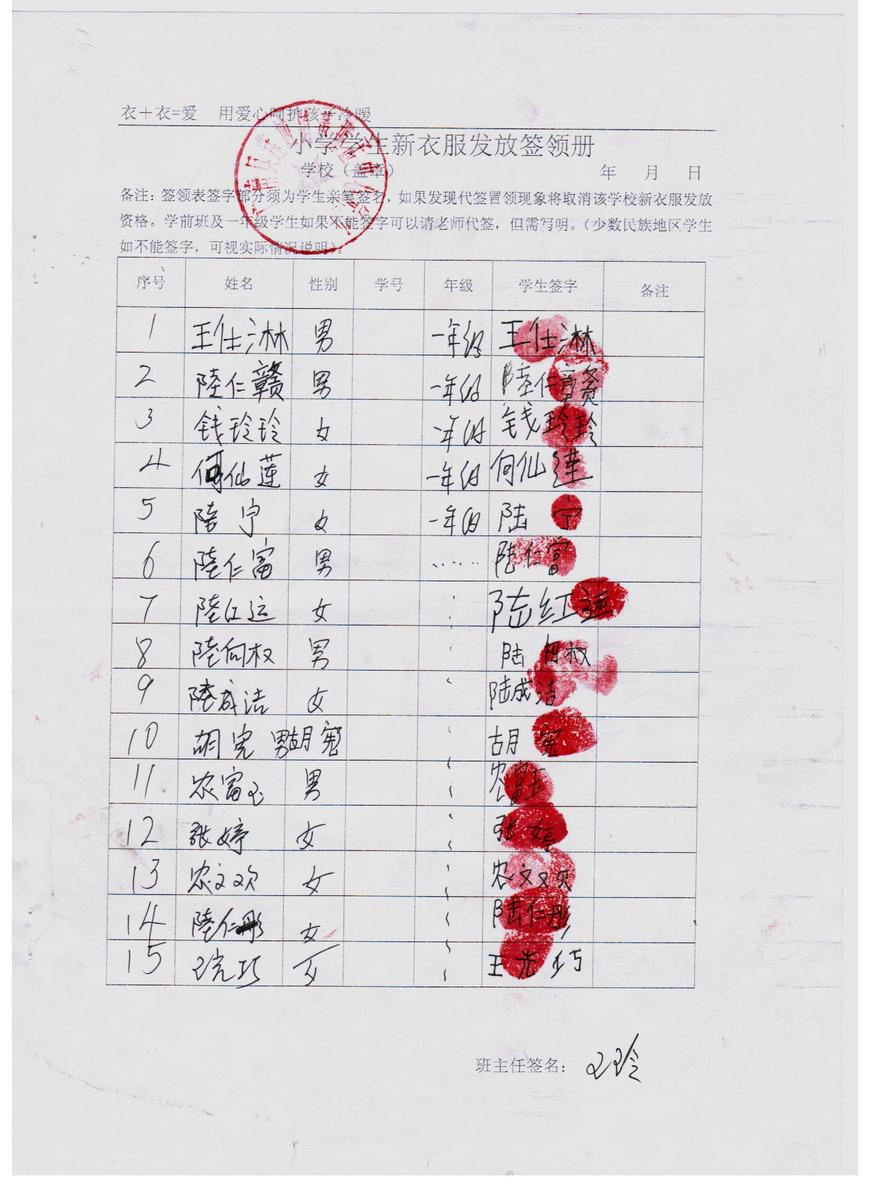 衣＋衣=爱 用爱心呵护孩子冷暖
小学学生新衣服发放签领册
学校（盖章） 年 月 日
备注：签领表签字部分须为学生亲笔签名，如果发现代签冒领现象将取消该学校新衣服发放
资格。学前班及一年级学生如果不能签字可以请老师代签，但需写明。（少数民族地区学生
如不能签字，可视实际情况说明）。
序号 姓名 性别 学号 年级 学生签字 备注
1 王仕淋 男 一年级 王仕淋
2 陸仁赣 男 一年级 陸仁赣
3 钱玲玲 女 一年级 钱玲玲
4 何仙莲 女 一年级 何仙莲
5 陸宁 女 一年级 陆宁
6 陸仁富 男 …… 陸仁富
7 陸红运 女 陆红运
8 陸向权 男 陆向权
9 陸成洁 女 陆成洁
10 胡宪 男 胡宪 胡宪
11 农富玉 男 农富玉
12 张婷 女 张婷
13 农文欢 女 农文欢
14 陸仁彤 女 陆仁彤
15 王光巧 女 王光巧
班主任签名： 王玲